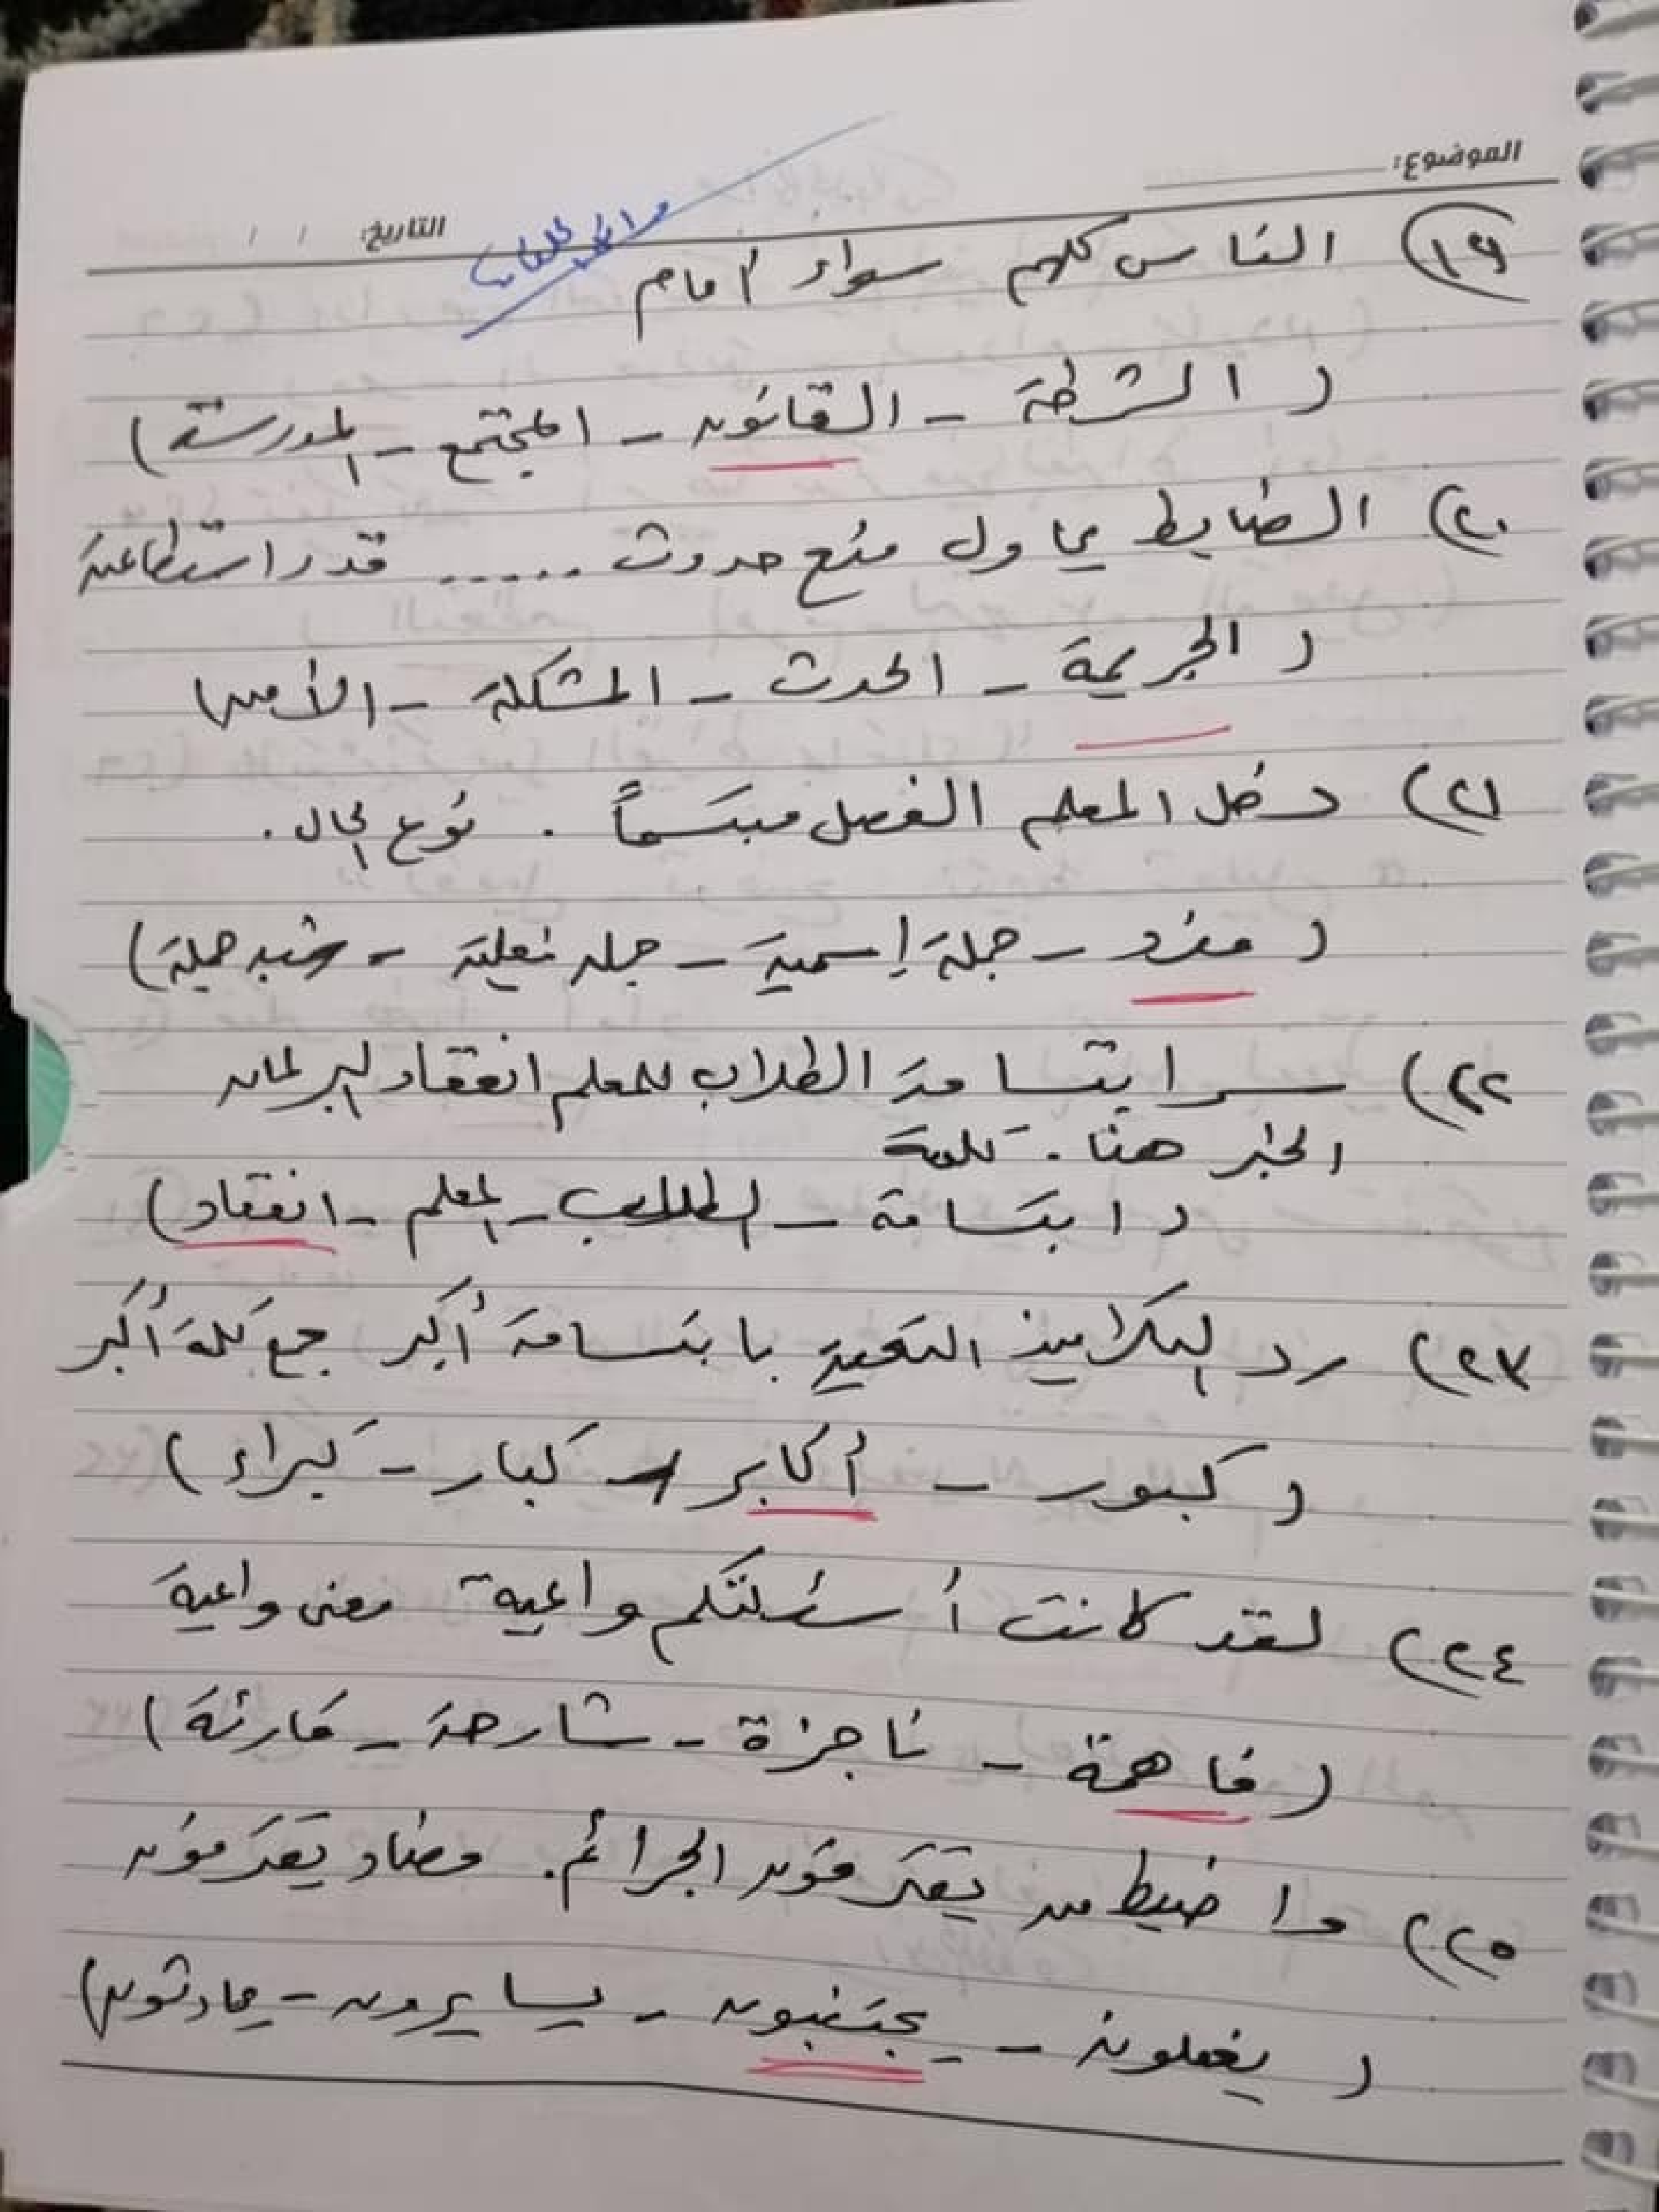 الموضوع:
التاريخ: / /
١٩) الناس كلهم سواء أمام
( الشرطة - القانون - المجتمع - المدرسة )
٢٠) الضابط يحاول منع حدوث ..... قدر استطاعته
( الجريمة - الحدث - المشكلة - الأمن )
٢١) دخل المعلم الفصل مبتسماً . نوع الحال .
( مفرد - جملة إسمية - جملة فعلية - شبه جملة )
٢٢) سر ابتسامة الطلاب للمعلم انعقاد البرلمان
الخبر هنا . كلمة
( ابتسامة - الطلاب - المعلم - انعقاد )
٢٣) رد التلاميذ التحية بابتسامة أكبر جمع كلمة أكبر
( كبور - أكابر - كبار - كبراء )
٢٤) لقد كانت أسئلتكم واعية معنى واعية
( فاهمة - ناجزة - شارحة - قارئة )
٢٥) وا ضبط من يقترفون الجرائم . مضاد يقترفون
( يفعلون - يجتنبون - يسايرون - يحادثون )